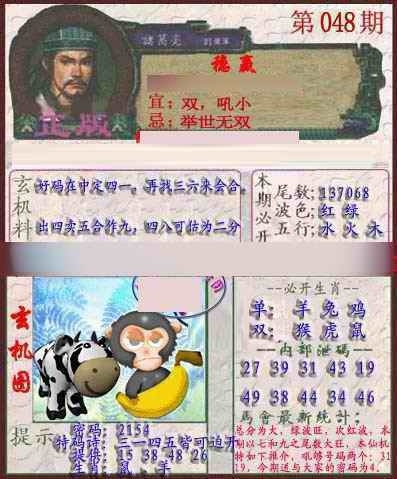 第048期
諸葛亮
德赢
宜：双，吼小
忌：举世无双
正版
玄机料
好码在中定四一。再找三六来会合。
出四卖五合作九，四八可估为二分
本期必开
尾数:137068
波色:红 绿
五行:水 火 木
玄机图
--必开生肖--
单: 羊 兔 鸡
双: 猴 虎 鼠
--内部泄码--
27 39 31 43 19
49 38 44 34 46
馬會最新統計:
总分为大，绿波旺，次红波，本期以七和九之尾数大旺，本仙机特如下推介，吼够号码两个：3119，今期送与大家的密码为4．
提示
密码: 2154
特码诗: 三一四五皆可迫开
提供: 15 38 48 26
生肖: 鼠、羊